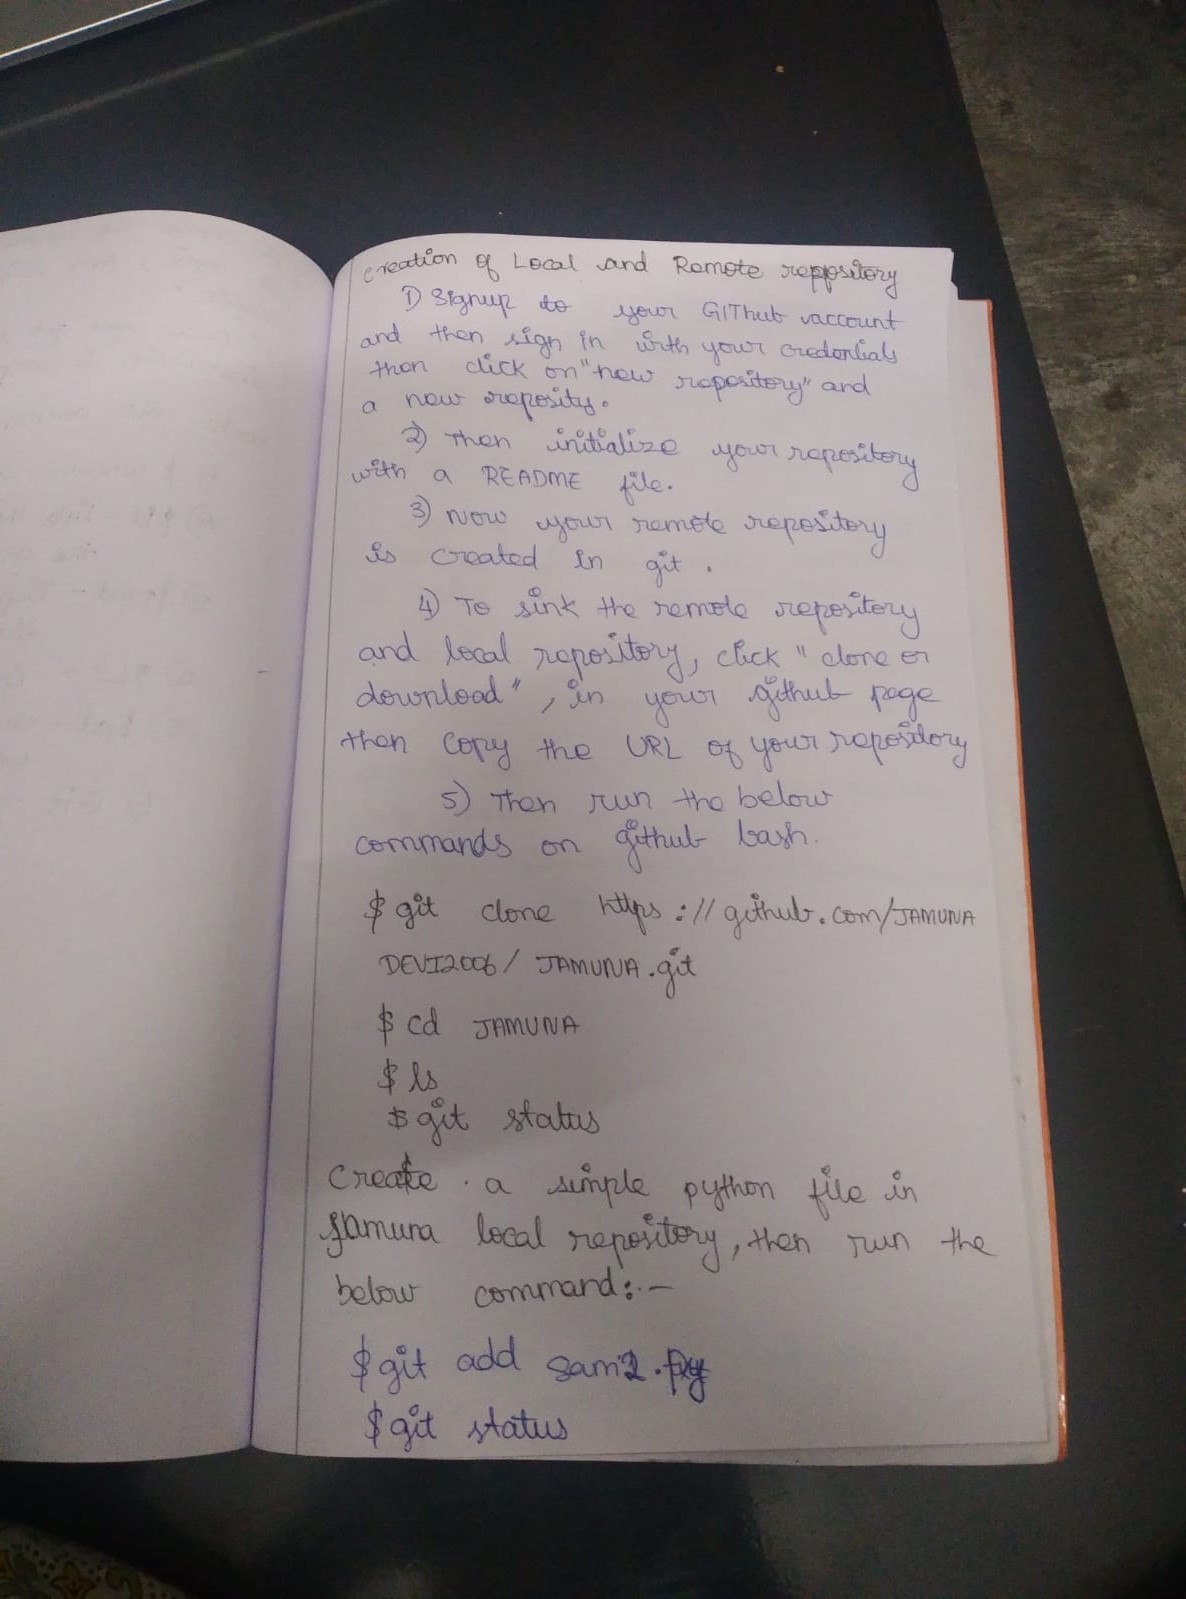 Creation of Local and Remote reppository
1) Signup to your GIThub account
and then sign in with your credentials
then click on "new repository" and
a new reposity.
2) Then initialize your repository
with a README file.
3) Now your remote repository
is created in git.
4) To sink the remote repository
and local repository, click "clone or
download", in your github page
then copy the URL of your repository
5) Then run the below
commands on github bash.
$ git clone https://github.com/JAMUNA
DEVI2006/JAMUNA.git
$ cd JAMUNA
$ ls
$ git status
Create . a simple python file in
Jamuna local repository, then run the
below command:-
$ git add sam2.py
$ git status